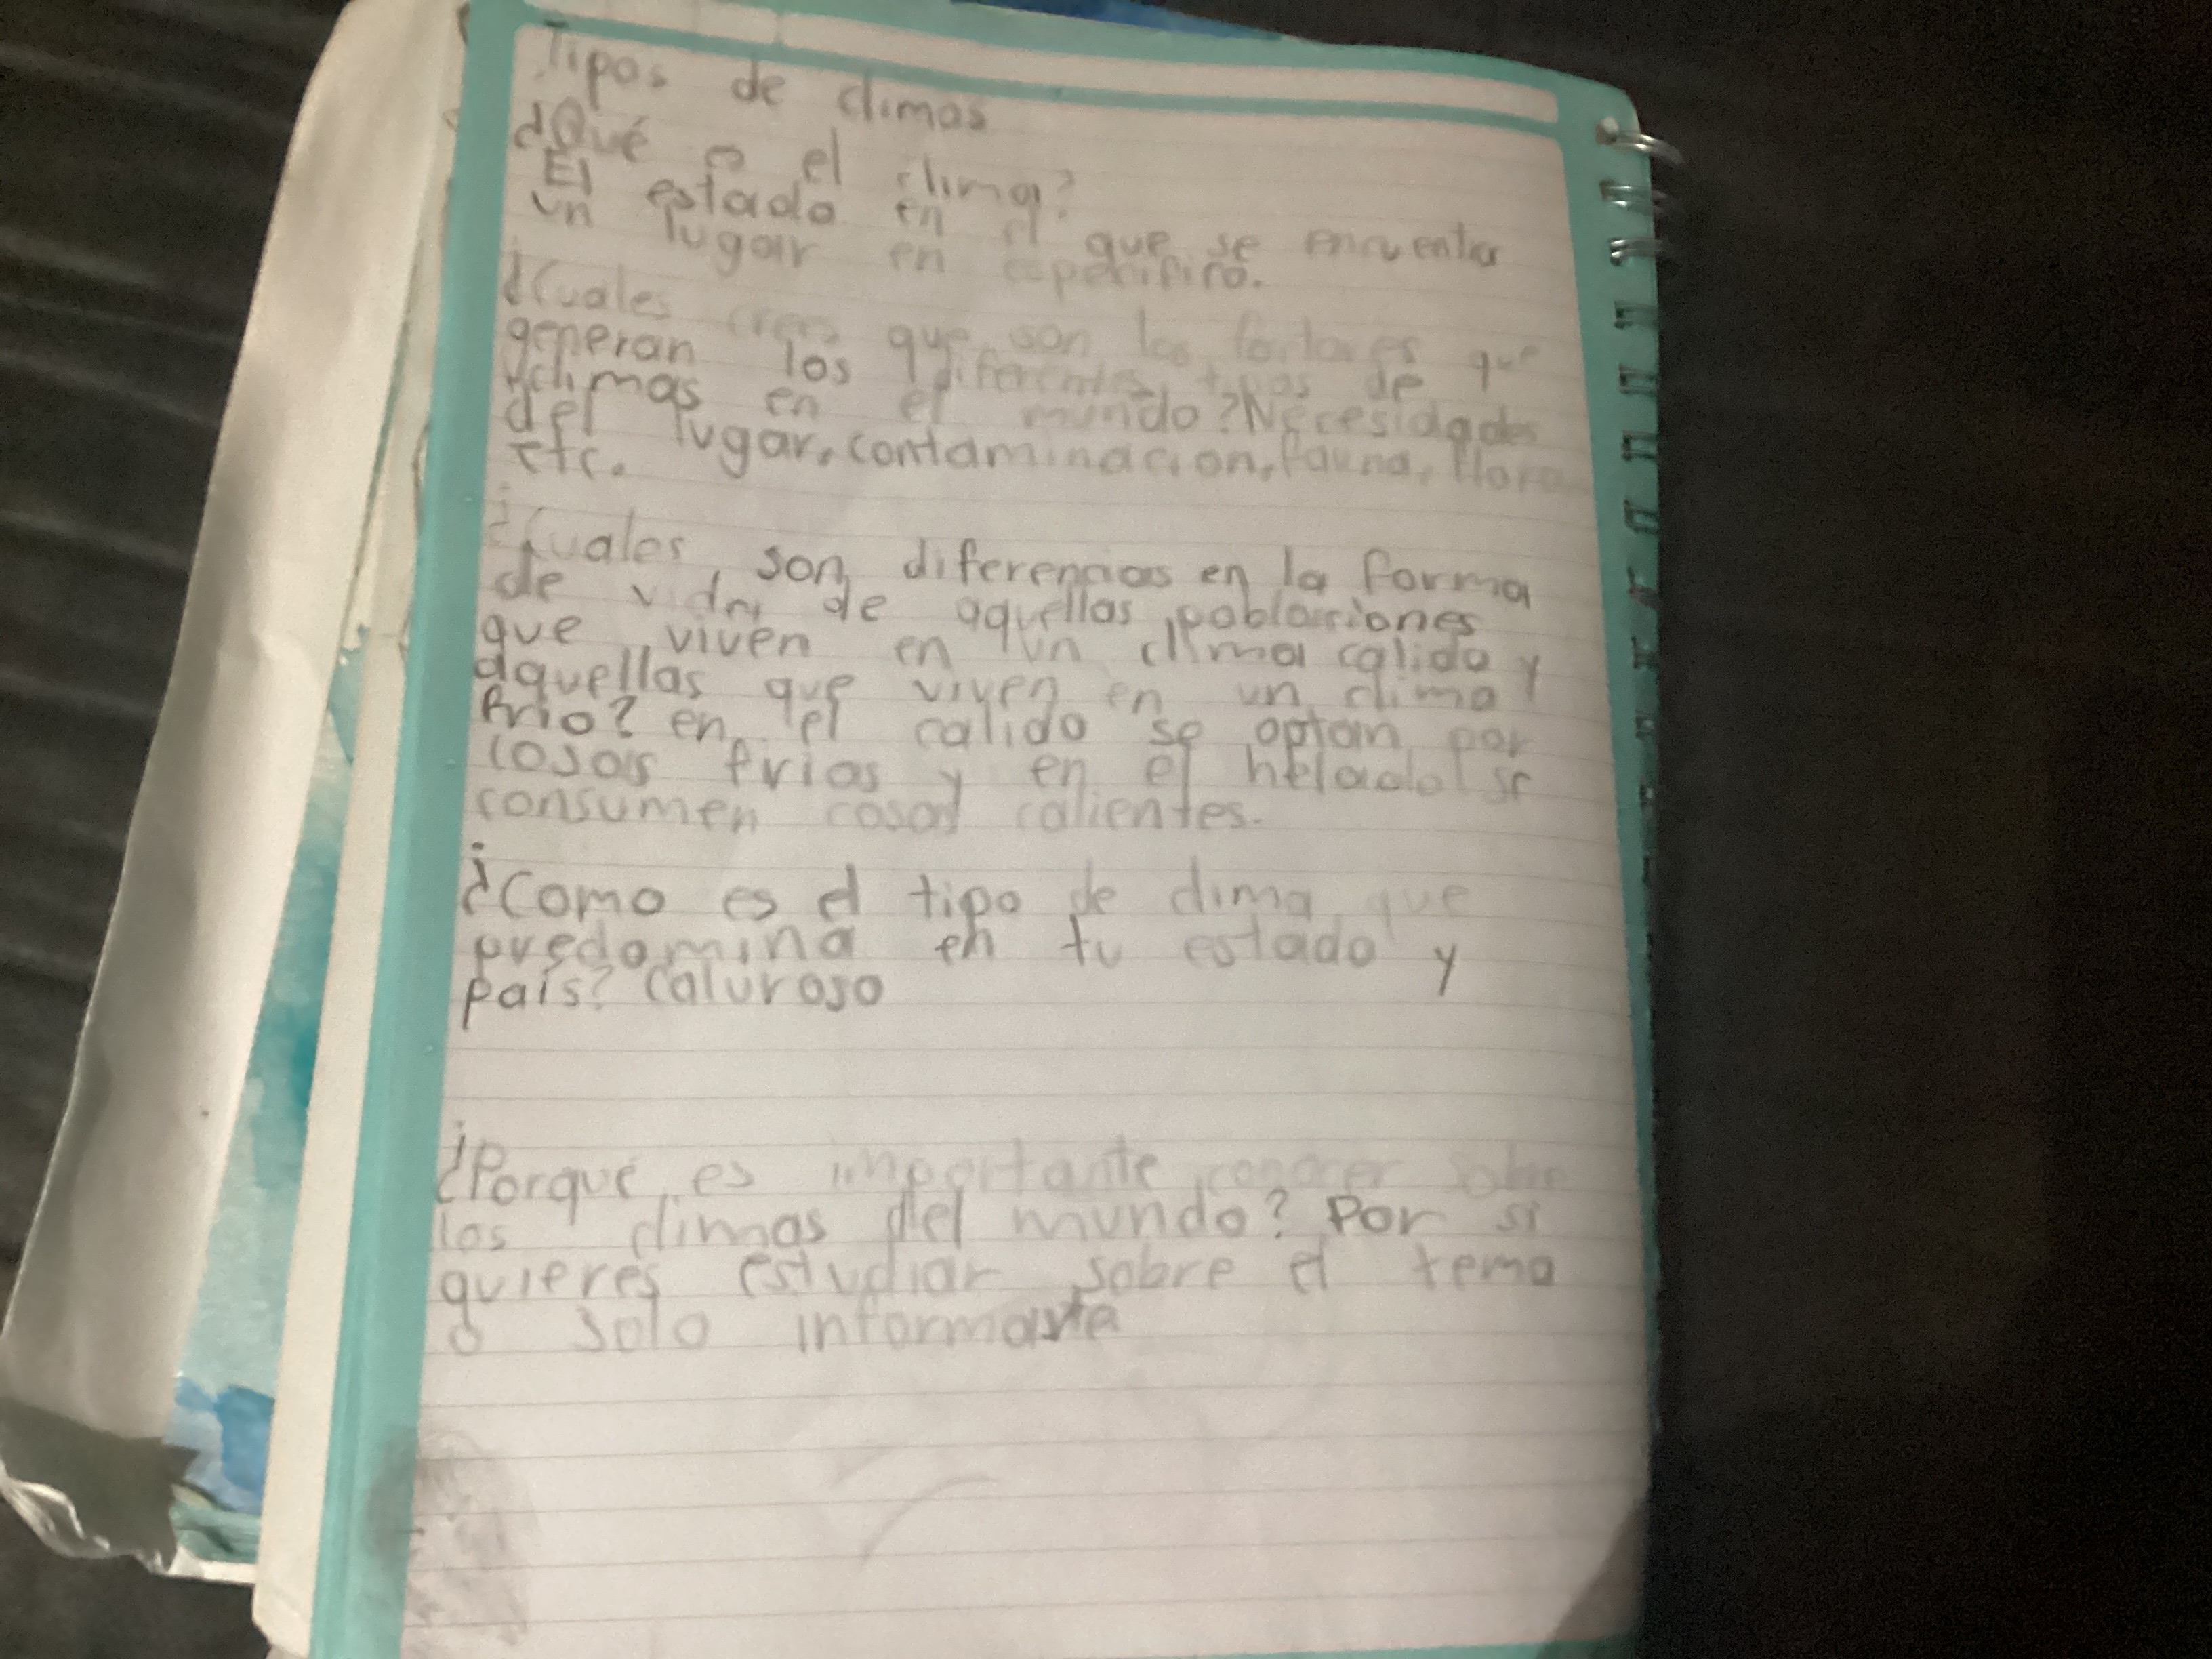 Tipos de climas
¿Qué es el clima?
El estado en el que se encuentra
un lugar en especifico.
¿Cuales crees que son los factores que
generan los diferentes tipos de
climas en el mundo? Necesidades
del lugar, contaminacion, fauna, flora
etc.
¿Cuales son diferencias en la forma
de vida de aquellas poblaciones
que viven en un clima calido y
aquellas que viven en un clima
frio? en el calido se optan por
cosas frias y en el helado se
consumen cosas calientes.
¿Como es el tipo de clima que
predomina en tu estado y
país? Caluroso
¿Porqué es importante conocer sobre
los climas del mundo? Por si
quieres estudiar sobre el tema
o solo informarte